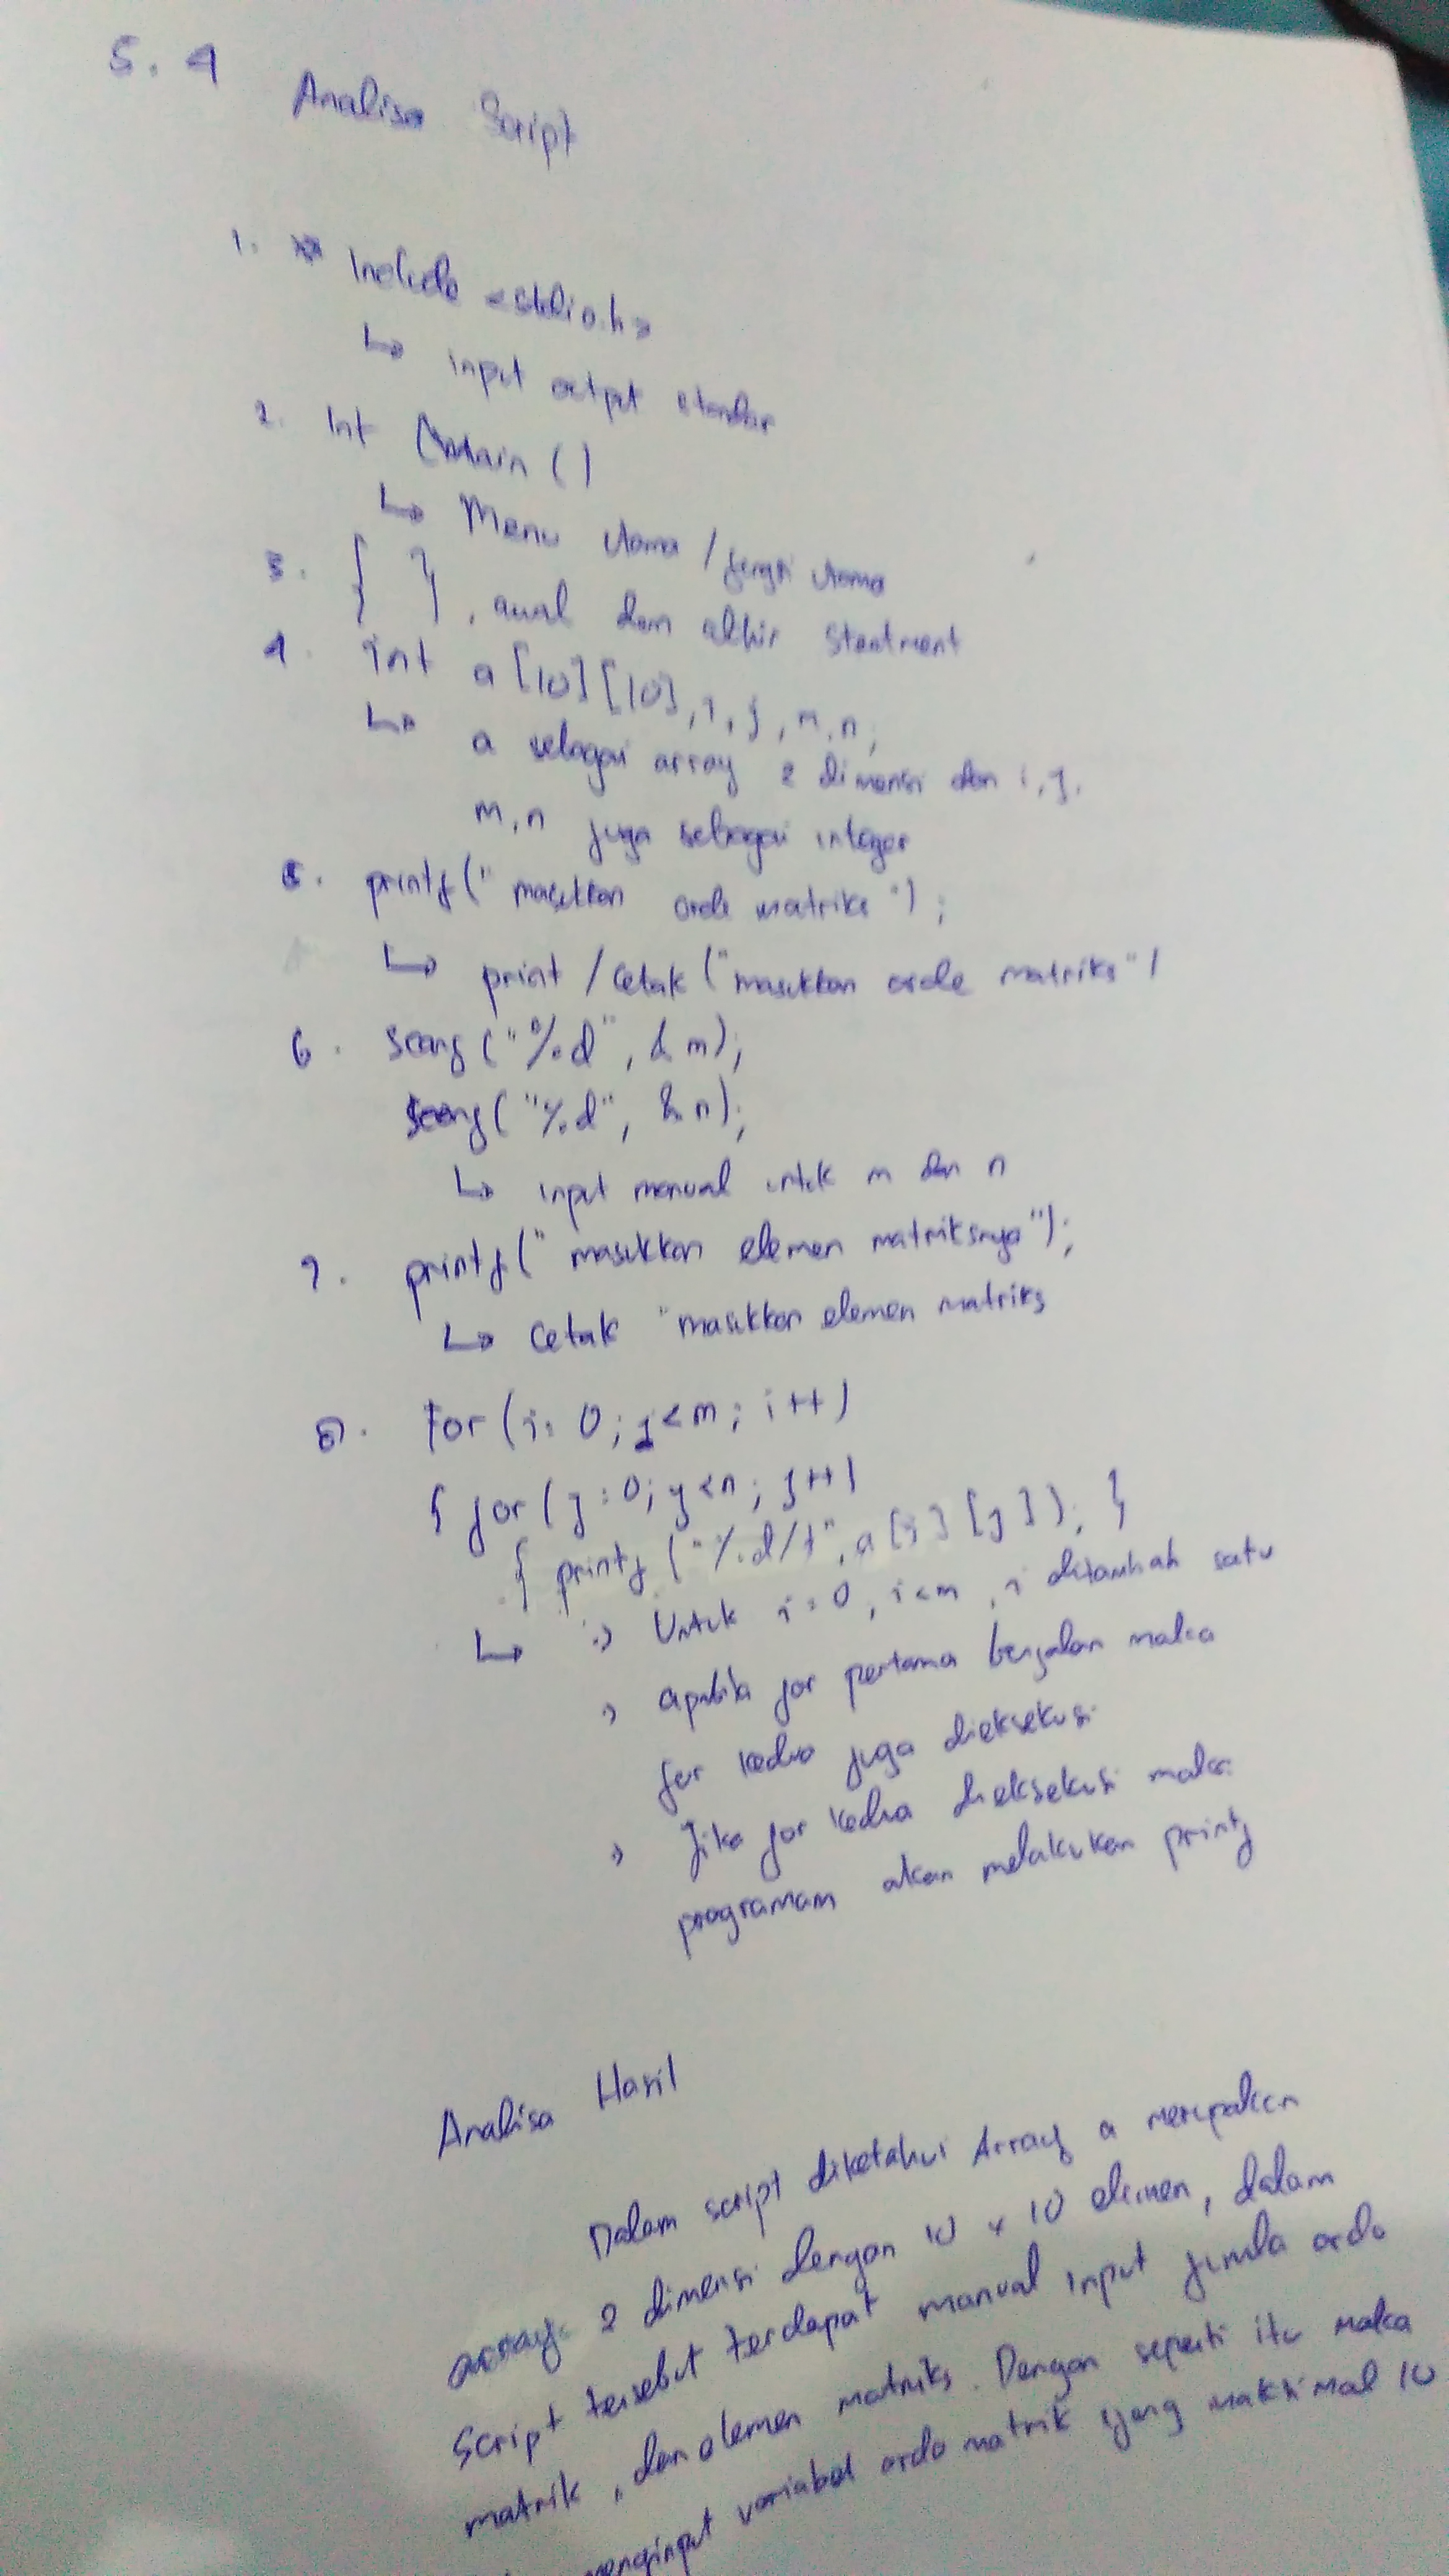 5. 4
Analisa Script
1. # Include <stdio.h>
↳ input output standar
2. Int Main ()
↳ Menu utama / fungsi utama
3. { }, awal dan akhir steatment
4. int a [10] [10], i, j, m, n;
↳ a sebagai array 2 dimensi dan i, j,
m, n juga sebagai integer
5. printf (" masukkan orde matriks ");
↳ print / cetak ("masukkan orde matriks")
6. Scanf ("%d", & m);
Scanf ("%d", & n);
↳ input manual untuk m dan n
7. printf (" masukkan elemen matriksnya");
↳ Cetak "masukkan elemen matriks
8. for (i= 0; j<m; i++)
{ for (j=0; j<n; j++)
{ printf ("%d/t", a [i] [j]); }
↳ :> Untuk i=0, i<m, i ditambah satu
> apabila for pertama berjalan maka
for kedua juga dieksekusi
> Jika for kedua dieksekusi maka
programam akan melakukan printf
Analisa Hasil
Dalam script diketahui Array a merupakan
array 2 dimensi dengan 10 x 10 elemen, dalam
Script tersebut terdapat manual input jumla ordo
matrik, dan elemen matriks. Dengan seperti itu maka
menginput variabel ordo matrik yang maksimal 10